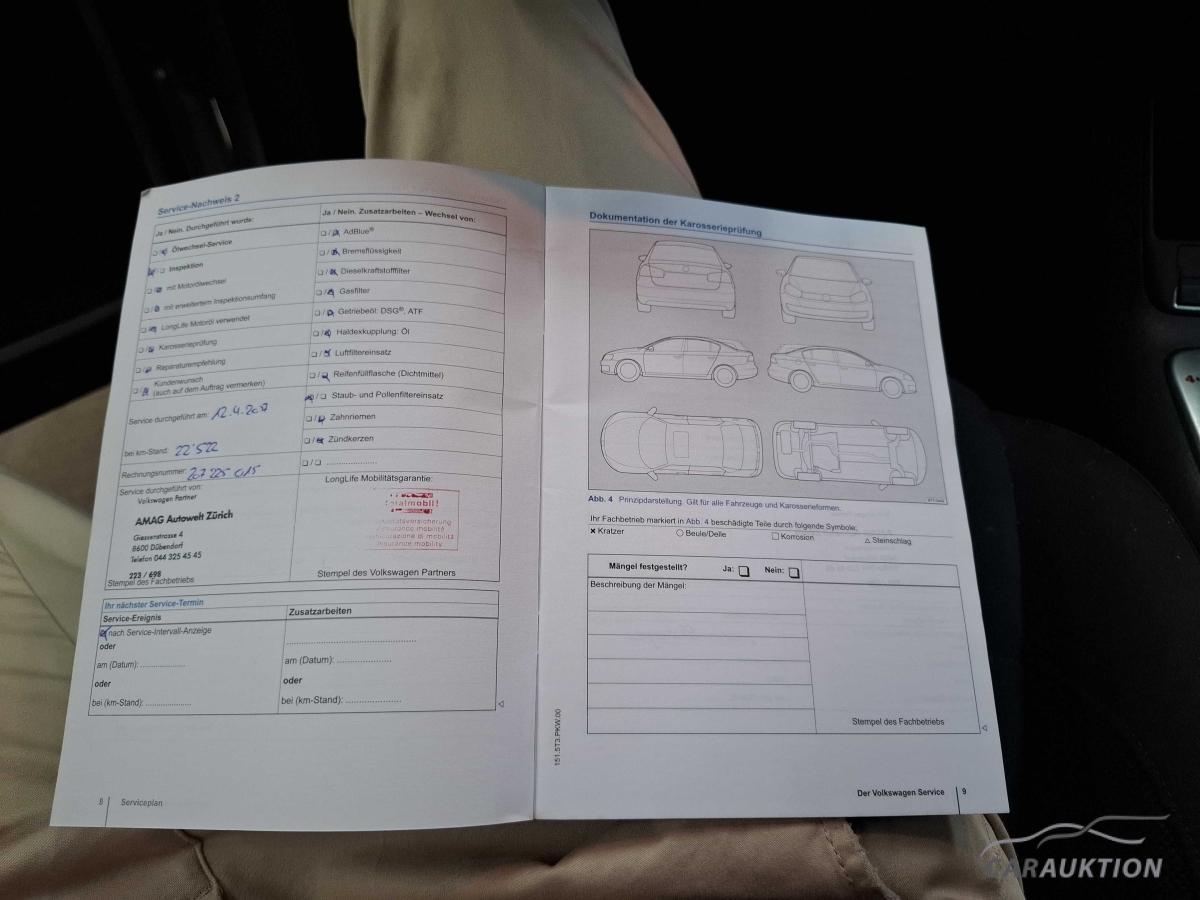 Service-Nachweis 2
Ja / Nein. Durchgeführt wurde:
❏/❏ Ölwechsel-Service
❏/❏ Inspektion
❏/❏ mit Motorölwechsel
❏/❏ mit erweitertem Inspektionsumfang
❏/❏ LongLife Motoröl verwendet
❏/❏ Karosserieprüfung
❏/❏ Reparaturempfehlung
❏/❏ Kundenwunsch
(auch auf dem Auftrag vermerken)
Service durchgeführt am: 12.4.2017
bei km-Stand: 22'522
Rechnungsnummer: 207 225 015
Service durchgeführt von:
Volkswagen Partner
AMAG Autowelt Zürich
Giessenstrasse 4
8600 Dübendorf
Telefon 044 325 45 45
223 / 698
Stempel des Fachbetriebs
Ja / Nein. Zusatzarbeiten – Wechsel von:
❏/❏ AdBlue®
❏/❏ Bremsflüssigkeit
❏/❏ Dieselkraftstofffilter
❏/❏ Gasfilter
❏/❏ Getriebeöl: DSG®, ATF
❏/❏ Haldexkupplung: Öl
❏/❏ Luftfiltereinsatz
❏/❏ Reifenfüllflasche (Dichtmittel)
❏/❏ Staub- und Pollenfiltereinsatz
❏/❏ Zahnriemen
❏/❏ Zündkerzen
❏/❏ ....................
LongLife Mobilitätsgarantie:
insurance mobility
Stempel des Volkswagen Partners
Ihr nächster Service-Termin
Service-Ereignis
nach Service-Intervall-Anzeige
oder
am (Datum): ..................
oder
bei (km-Stand): ..................
Zusatzarbeiten
........................................
am (Datum): ......................
oder
bei (km-Stand): ......................
8 Serviceplan
Dokumentation der Karosserieprüfung
Abb. 4 Prinzipdarstellung. Gilt für alle Fahrzeuge und Karosserieformen.
Ihr Fachbetrieb markiert in Abb. 4 beschädigte Teile durch folgende Symbole:
✖ Kratzer ○ Beule/Delle □ Korrosion △ Steinschlag
Mängel festgestellt? Ja: ❏ Nein: ❏
Beschreibung der Mängel:
Stempel des Fachbetriebs
151.5T3.PKW.00
Der Volkswagen Service 9
CARAUKTION